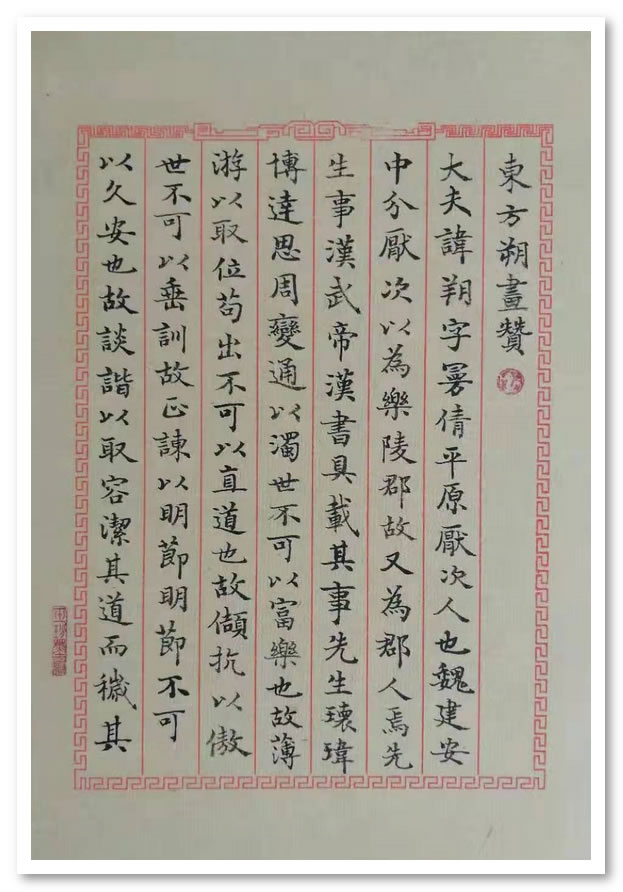 東方朔畫贊
大夫諱朔字曼倩平原厭次人也魏建安
中分厭次以為樂陵郡故又為郡人焉先
生事漢武帝漢書具載其事先生瓌瑋
博達思周變通以濁世不可以富樂也故薄
游以取位苟出不可以直道也故頡抗以傲
世不可以垂訓故正諫以明節明節不可
以久安也故談諧以取容潔其道而穢其